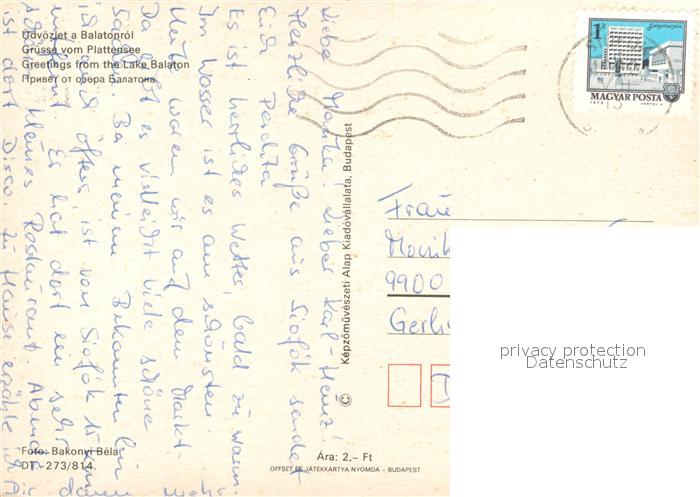 Üdvözlet a Balatonról
Grüsse vom Plattensee
Greetings from the Lake Balaton
Привет от озера Балатона
Liebe Monika! Lieber Karl-Heinz!
Herzliche Grüße aus Siofok sendet
Euch Perdita
Es ist herrliches Wetter, bald zu warm.
Im Wasser ist es am schönsten.
Heute waren wir auf dem Markt.
Da gibt es vielleicht viele schöne
Sachen. Bei meinem Bekannten bin
ich öfters ist von Siofok 15 km
entfernt. Es liegt dort ein sehr
schönes kleines Restaurant. Abends
ist dort Disco. Zu Hause erzähle ich Dir
dann
© Képzőművészeti Alap Kiadóvállalata, Budapest
Foto: Bakonyi Béla
DT.-273/814.
Ára: 2,– Ft
OFFSET ÉS JÁTÉKKÁRTYA NYOMDA - BUDAPEST
1 Ft
Salgótarján
MAGYAR POSTA
Frau
Monik
9900
privacy protection
Datenschutz